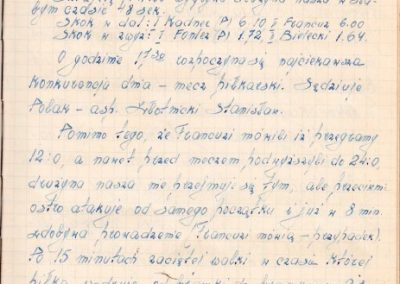 czasie 48 sek.
Skok w dal: I Radnec (P) 6.10 I Francuz 6.00
Skok w zwyż: I Poniec (P) 1,72 I Bielecki 1.64.
O godzinie 17³⁰ rozpoczyna się najciekawsza
konkurencja dnia – mecz piłkarski. Sędziuje
Polak – asp. Stanisław.
Pomimo tego, że Francuzi mówili iż przegramy
12:0, a nawet przed meczem podwyższyli do 24:0,
drużyna nasza nie przejmuje się tym, ale przeciwnie
ostro atakuje od samego początku i już w 8 min.
zdobywa prowadzenie (Francuzi mówią – przypadek).
Po 15 minutach zaciętej walki w czasie której
piłka